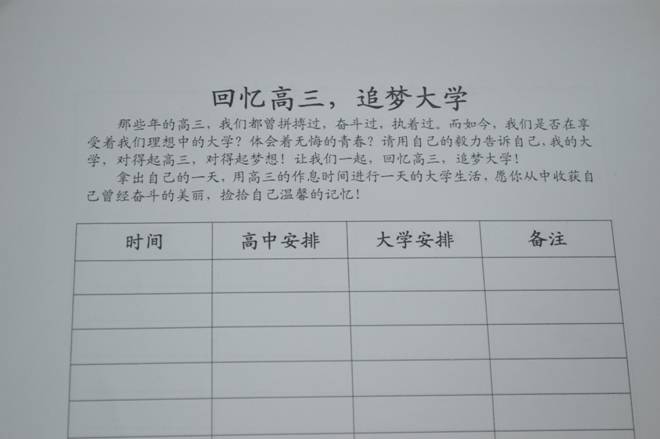 回忆高三，追梦大学
那些年的高三，我们都曾拼搏过，奋斗过，执着过。而如今，我们是否在享
受着我们理想中的大学？体会着无悔的青春？请用自己的毅力告诉自己，我的大
学，对得起高三，对得起梦想！让我们一起，回忆高三，追梦大学！
拿出自己的一天，用高三的作息时间进行一天的大学生活，愿你从中收获自
己曾经奋斗的美丽，捡拾自己温馨的记忆！
时间 高中安排 大学安排 备注